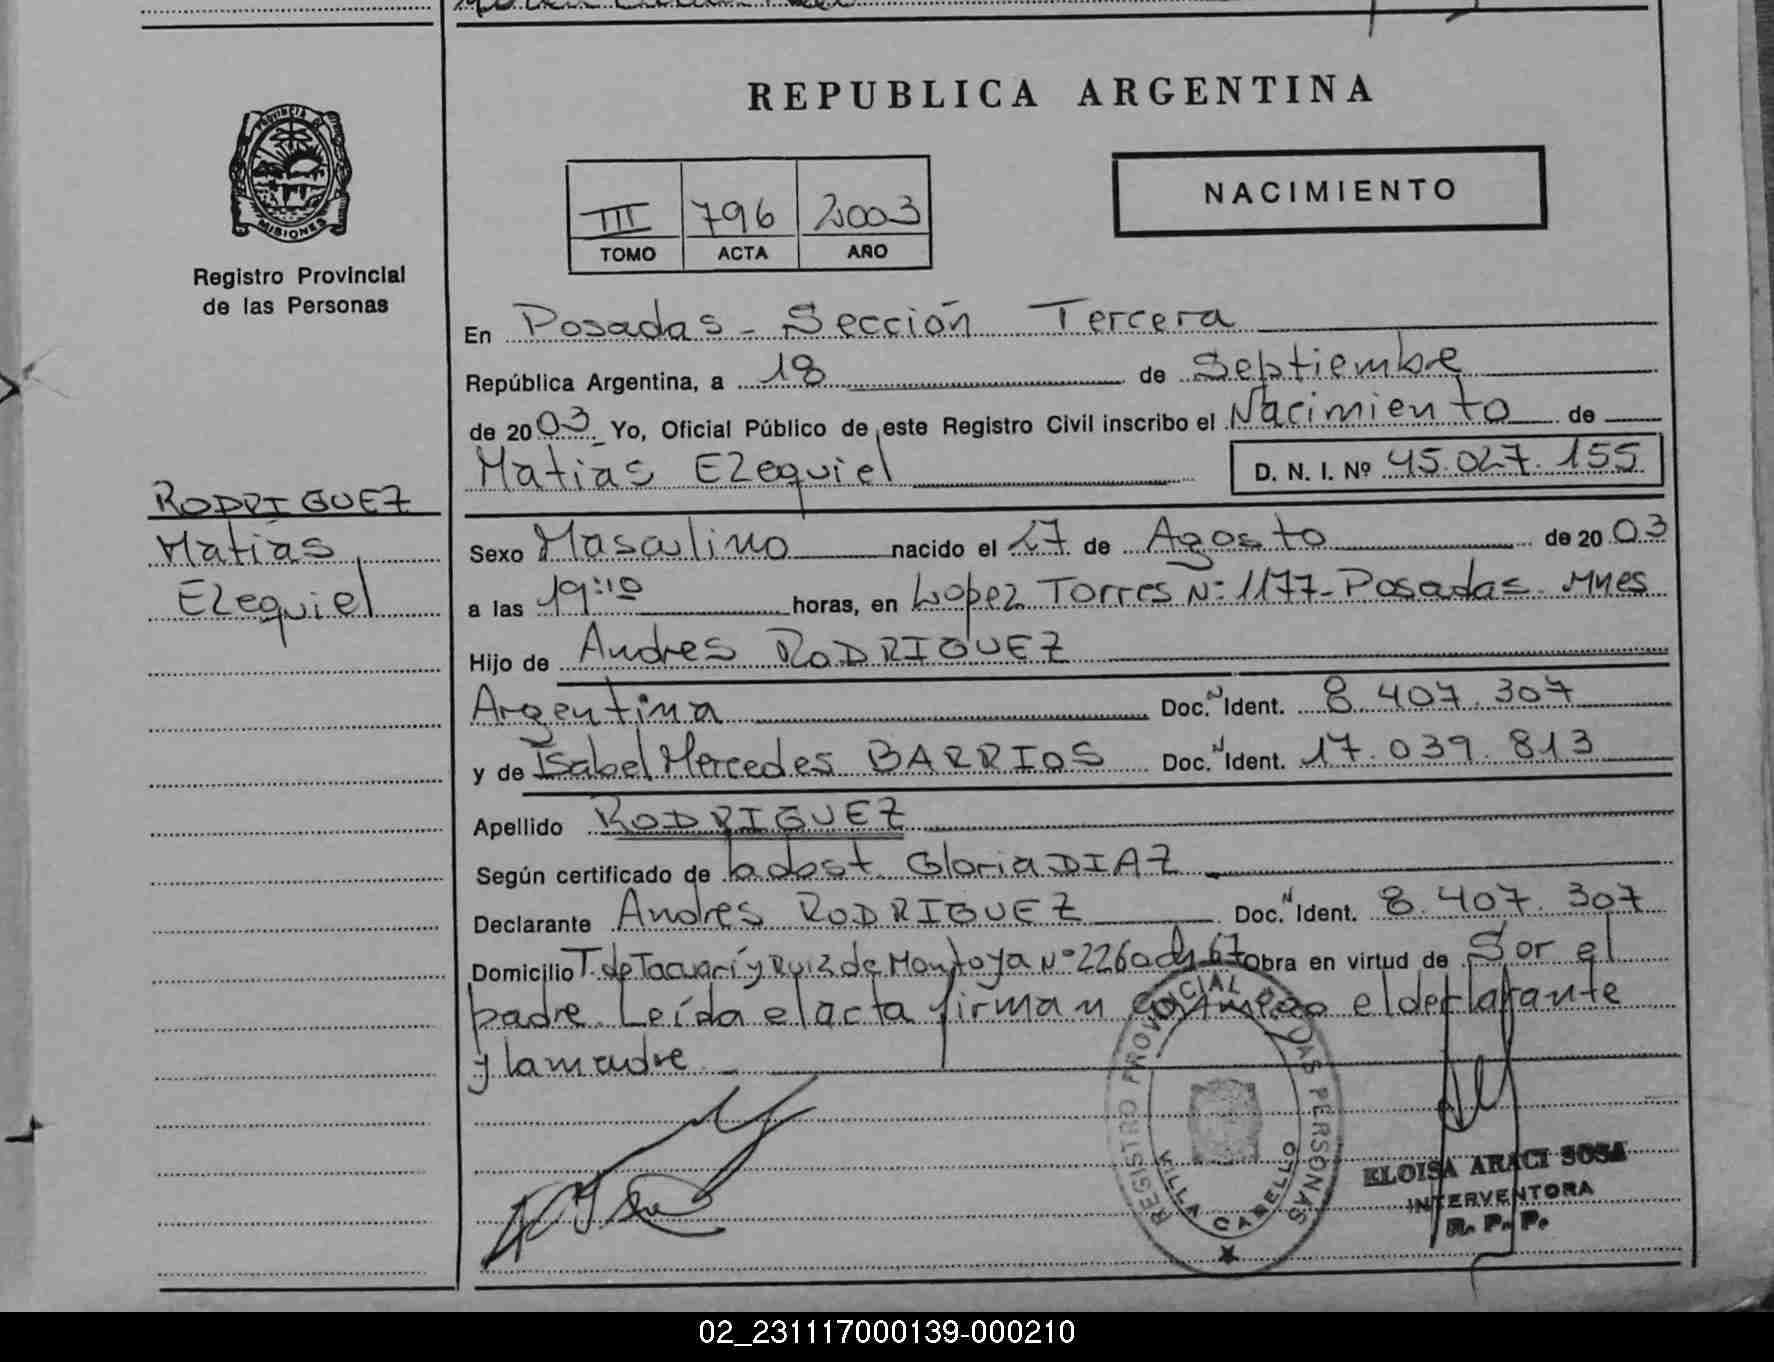 REPUBLICA ARGENTINA
PROVINCIA DE
MISIONES
Registro Provincial
de las Personas
NACIMIENTO
III 796 2003
TOMO ACTA AÑO
En Posadas - Sección Tercera
República Argentina, a 18 de Septiembre
de 2003 Yo, Oficial Público de este Registro Civil inscribo el Nacimiento de
Matías Ezequiel D. N. I. Nº 45.027.155
RODRIGUEZ
Matías
Ezequiel
Sexo Masculino nacido el 27 de Agosto de 2003
a las 19:10 horas, en Lopez Torres Nº 1177- Posadas. Mnes
Hijo de Andres RODRIGUEZ
Argentina Doc. N Ident. 8.407.307
y de Isabel Mercedes BARRIOS Doc. N Ident. 17.039.813
Apellido RODRIGUEZ
Según certificado de la obst. Gloria DIAZ
Declarante Andres RODRIGUEZ Doc. N Ident. 8.407.307
Domicilio T. de Tacuarí y Ruiz de Montoya Nº 226 67 Obra en virtud de Sor el
padre. Leída el acta firman el declarante
y la madre.
REGISTRO PROVINCIAL DE LAS PERSONAS
VILLA CABELLO
ELOISA ARACI SOSA
INTERVENTORA
R. P. P.
02_231117000139-000210